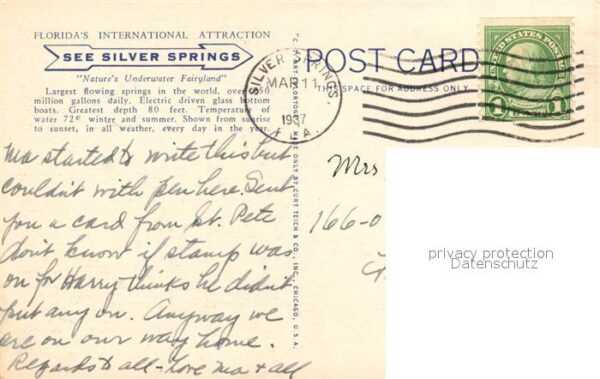 FLORIDA'S INTERNATIONAL ATTRACTION
SEE SILVER SPRINGS
"Nature's Underwater Fairyland"
Largest flowing springs in the world, over
million gallons daily. Electric driven glass bottom
boats. Greatest depth 80 feet. Temperature of
water 72° winter and summer. Shown from sunrise
to sunset, in all weather, every day in the year.
Ma started to write this but
couldn't with pen here. Sent
you a card from St. Pete
don't know if stamp was
on for Harry thinks he didn't
put any on. Anyway we
are on our way home.
Regards to all - Love Ma + all
MADE ONLY BY CURT TEICH & CO., INC., CHICAGO, U.S.A.
POST CARD
SPACE FOR ADDRESS ONLY
SILVER SPRINGS,
MAR 11
1937
FLA.
UNITED STATES POSTAGE
1 1
Mrs
166-0
privacy protection
Datenschutz